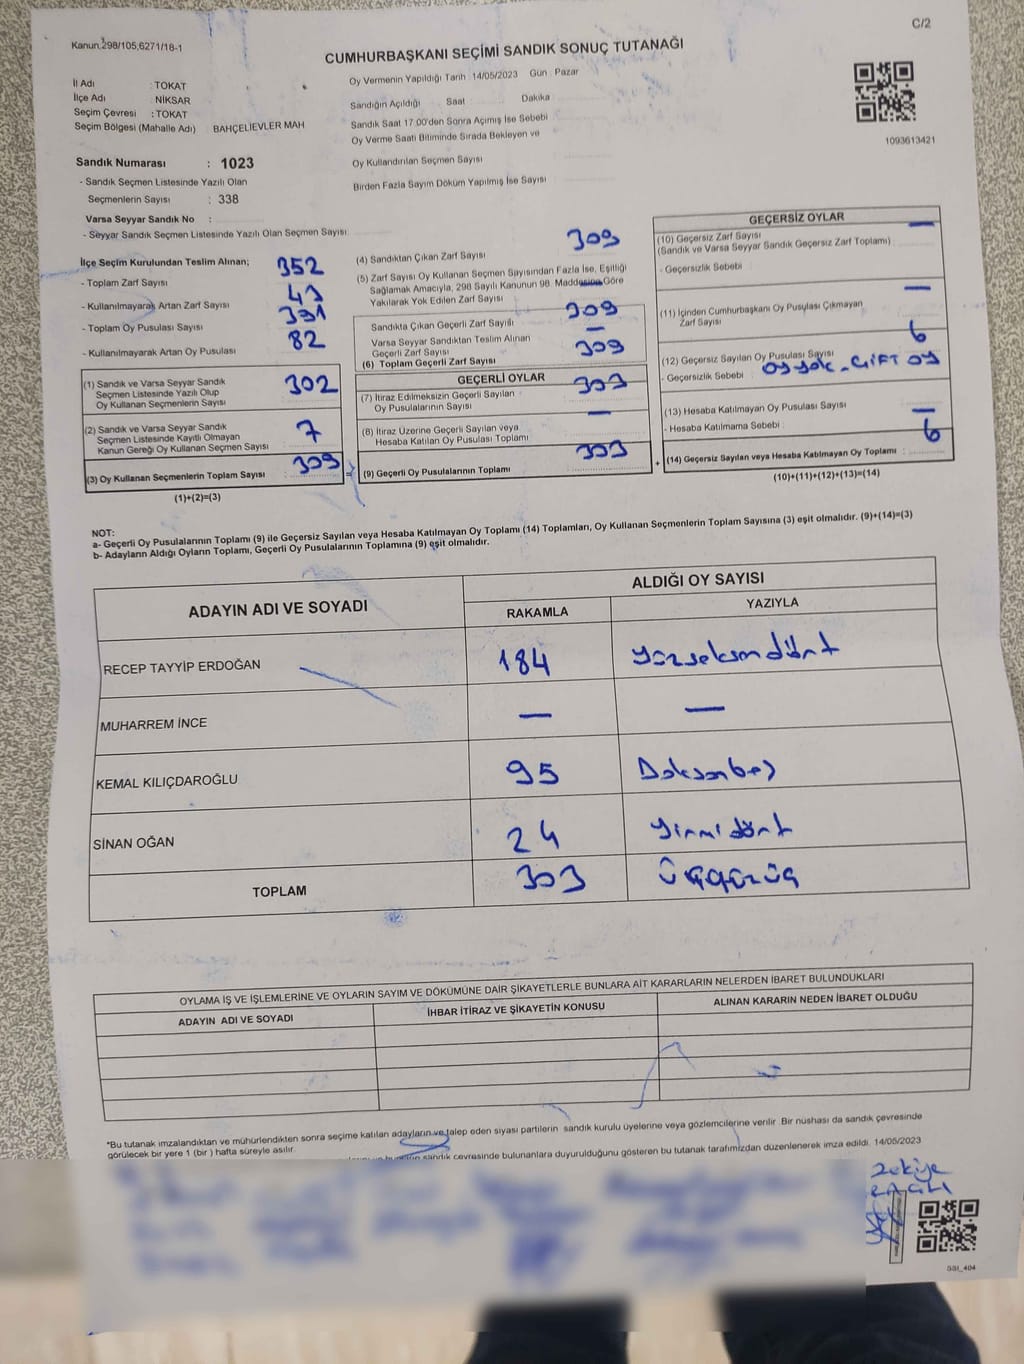 C/2
Kanun,298/105,6271/18-1
CUMHURBAŞKANI SEÇİMİ SANDIK SONUÇ TUTANAĞI
İl Adı : TOKAT
İlçe Adı : NİKSAR
Seçim Çevresi : TOKAT
Seçim Bölgesi (Mahalle Adı) BAHÇELİEVLER MAH
Oy Vermenin Yapıldığı Tarih 14/05/2023 Gün Pazar
Sandığın Açıldığı Saat Dakika
Sandık Saat 17:00'den Sonra Açımış İse Sebebi
Oy Verme Saati Bitiminde Sırada Bekleyen ve
Oy Kullandırılan Seçmen Sayısı
Birden Fazla Sayım Döküm Yapılmış İse Sayısı
1093613421
Sandık Numarası : 1023
- Sandık Seçmen Listesinde Yazılı Olan
Seçmenlerin Sayısı : 338
Varsa Seyyar Sandık No :
- Seyyar Sandık Seçmen Listesinde Yazılı Olan Seçmen Sayısı:
İlçe Seçim Kurulundan Teslim Alınan;
- Toplam Zarf Sayısı 352
- Kullanılmayarak Artan Zarf Sayısı 43
- Toplam Oy Pusulası Sayısı 391
- Kullanılmayarak Artan Oy Pusulası 82
(1) Sandık ve Varsa Seyyar Sandık
Seçmen Listesinde Yazılı Olup
Oy Kullanan Seçmenlerin Sayısı 302
(2) Sandık ve Varsa Seyyar Sandık
Seçmen Listesinde Kayıtlı Olmayan
Kanun Gereği Oy Kullanan Seçmen Sayısı 7
(3) Oy Kullanan Seçmenlerin Toplam Sayısı 309
(1)+(2)=(3)
(4) Sandıktan Çıkan Zarf Sayısı 309
(5) Zarf Sayısı Oy Kullanan Seçmen Sayısından Fazla İse, Eşitliği
Sağlamak Amacıyla, 298 Sayılı Kanunun 98. Maddesine Göre
Yakılarak Yok Edilen Zarf Sayısı —
Sandıkta Çıkan Geçerli Zarf Sayısı 309
Varsa Seyyar Sandıktan Teslim Alınan
Geçerli Zarf Sayısı —
(6) Toplam Geçerli Zarf Sayısı 309
GEÇERLİ OYLAR
(7) İtiraz Edilmeksizin Geçerli Sayılan
Oy Pusulalarının Sayısı 303
(8) İtiraz Üzerine Geçerli Sayılan veya
Hesaba Katılan Oy Pusulası Toplamı —
(9) Geçerli Oy Pusulalarının Toplamı 303
GEÇERSİZ OYLAR
(10) Geçersiz Zarf Sayısı —
(Sandık ve Varsa Seyyar Sandık Geçersiz Zarf Toplamı)
- Geçersizlik Sebebi
(11) İçinden Cumhurbaşkanı Oy Pusulası Çıkmayan
Zarf Sayısı —
(12) Geçersiz Sayılan Oy Pusulası Sayısı 6
- Geçersizlik Sebebi : oy yok - ÇİFT OY
(13) Hesaba Katılmayan Oy Pusulası Sayısı —
- Hesaba Katılmama Sebebi :
(14) Geçersiz Sayılan veya Hesaba Katılmayan Oy Toplamı : 6
(10)+(11)+(12)+(13)=(14)
NOT:
a- Geçerli Oy Pusulalarının Toplamı (9) ile Geçersiz Sayılan veya Hesaba Katılmayan Oy Toplamı (14) Toplamları, Oy Kullanan Seçmenlerin Toplam Sayısına (3) eşit olmalıdır. (9)+(14)=(3)
b- Adayların Aldığı Oyların Toplamı, Geçerli Oy Pusulalarının Toplamına (9) eşit olmalıdır.
ADAYIN ADI VE SOYADI
ALDIĞI OY SAYISI
RAKAMLA YAZIYLA
RECEP TAYYİP ERDOĞAN 184 Yüzseksendört
MUHARREM İNCE — —
KEMAL KILIÇDAROĞLU 95 Doksanbeş
SİNAN OĞAN 24 Yirmidört
TOPLAM 303 Üçyüzüç
OYLAMA İŞ VE İŞLEMLERİNE VE OYLARIN SAYIM VE DÖKÜMÜNE DAİR ŞİKAYETLERLE BUNLARA AİT KARARLARIN NELERDEN İBARET BULUNDUKLARI
ADAYIN ADI VE SOYADI İHBAR İTİRAZ VE ŞİKAYETİN KONUSU ALINAN KARARIN NEDEN İBARET OLDUĞU
*Bu tutanak imzalandıktan ve mühürlendikten sonra seçime katılan adayların ve talep eden siyasi partilerin sandık kurulu üyelerine veya gözlemcilerine verilir. Bir nüshası da sandık çevresinde
görülecek bir yere 1 (bir) hafta süreyle asılır.
sandık çevresinde bulunanlara duyurulduğunu gösteren bu tutanak tarafımızdan düzenlenerek imza edildi. 14/05/2023
Zekiye